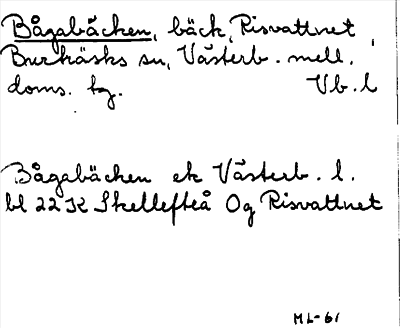 Bågabäcken, bäck, Risvattnet
Burträsks sn, Västerb. mell.
doms. hg. Vb. l
Bågabäcken ek Västerb. l.
bl 22 K Skellefteå Og Risvattnet
ML-61